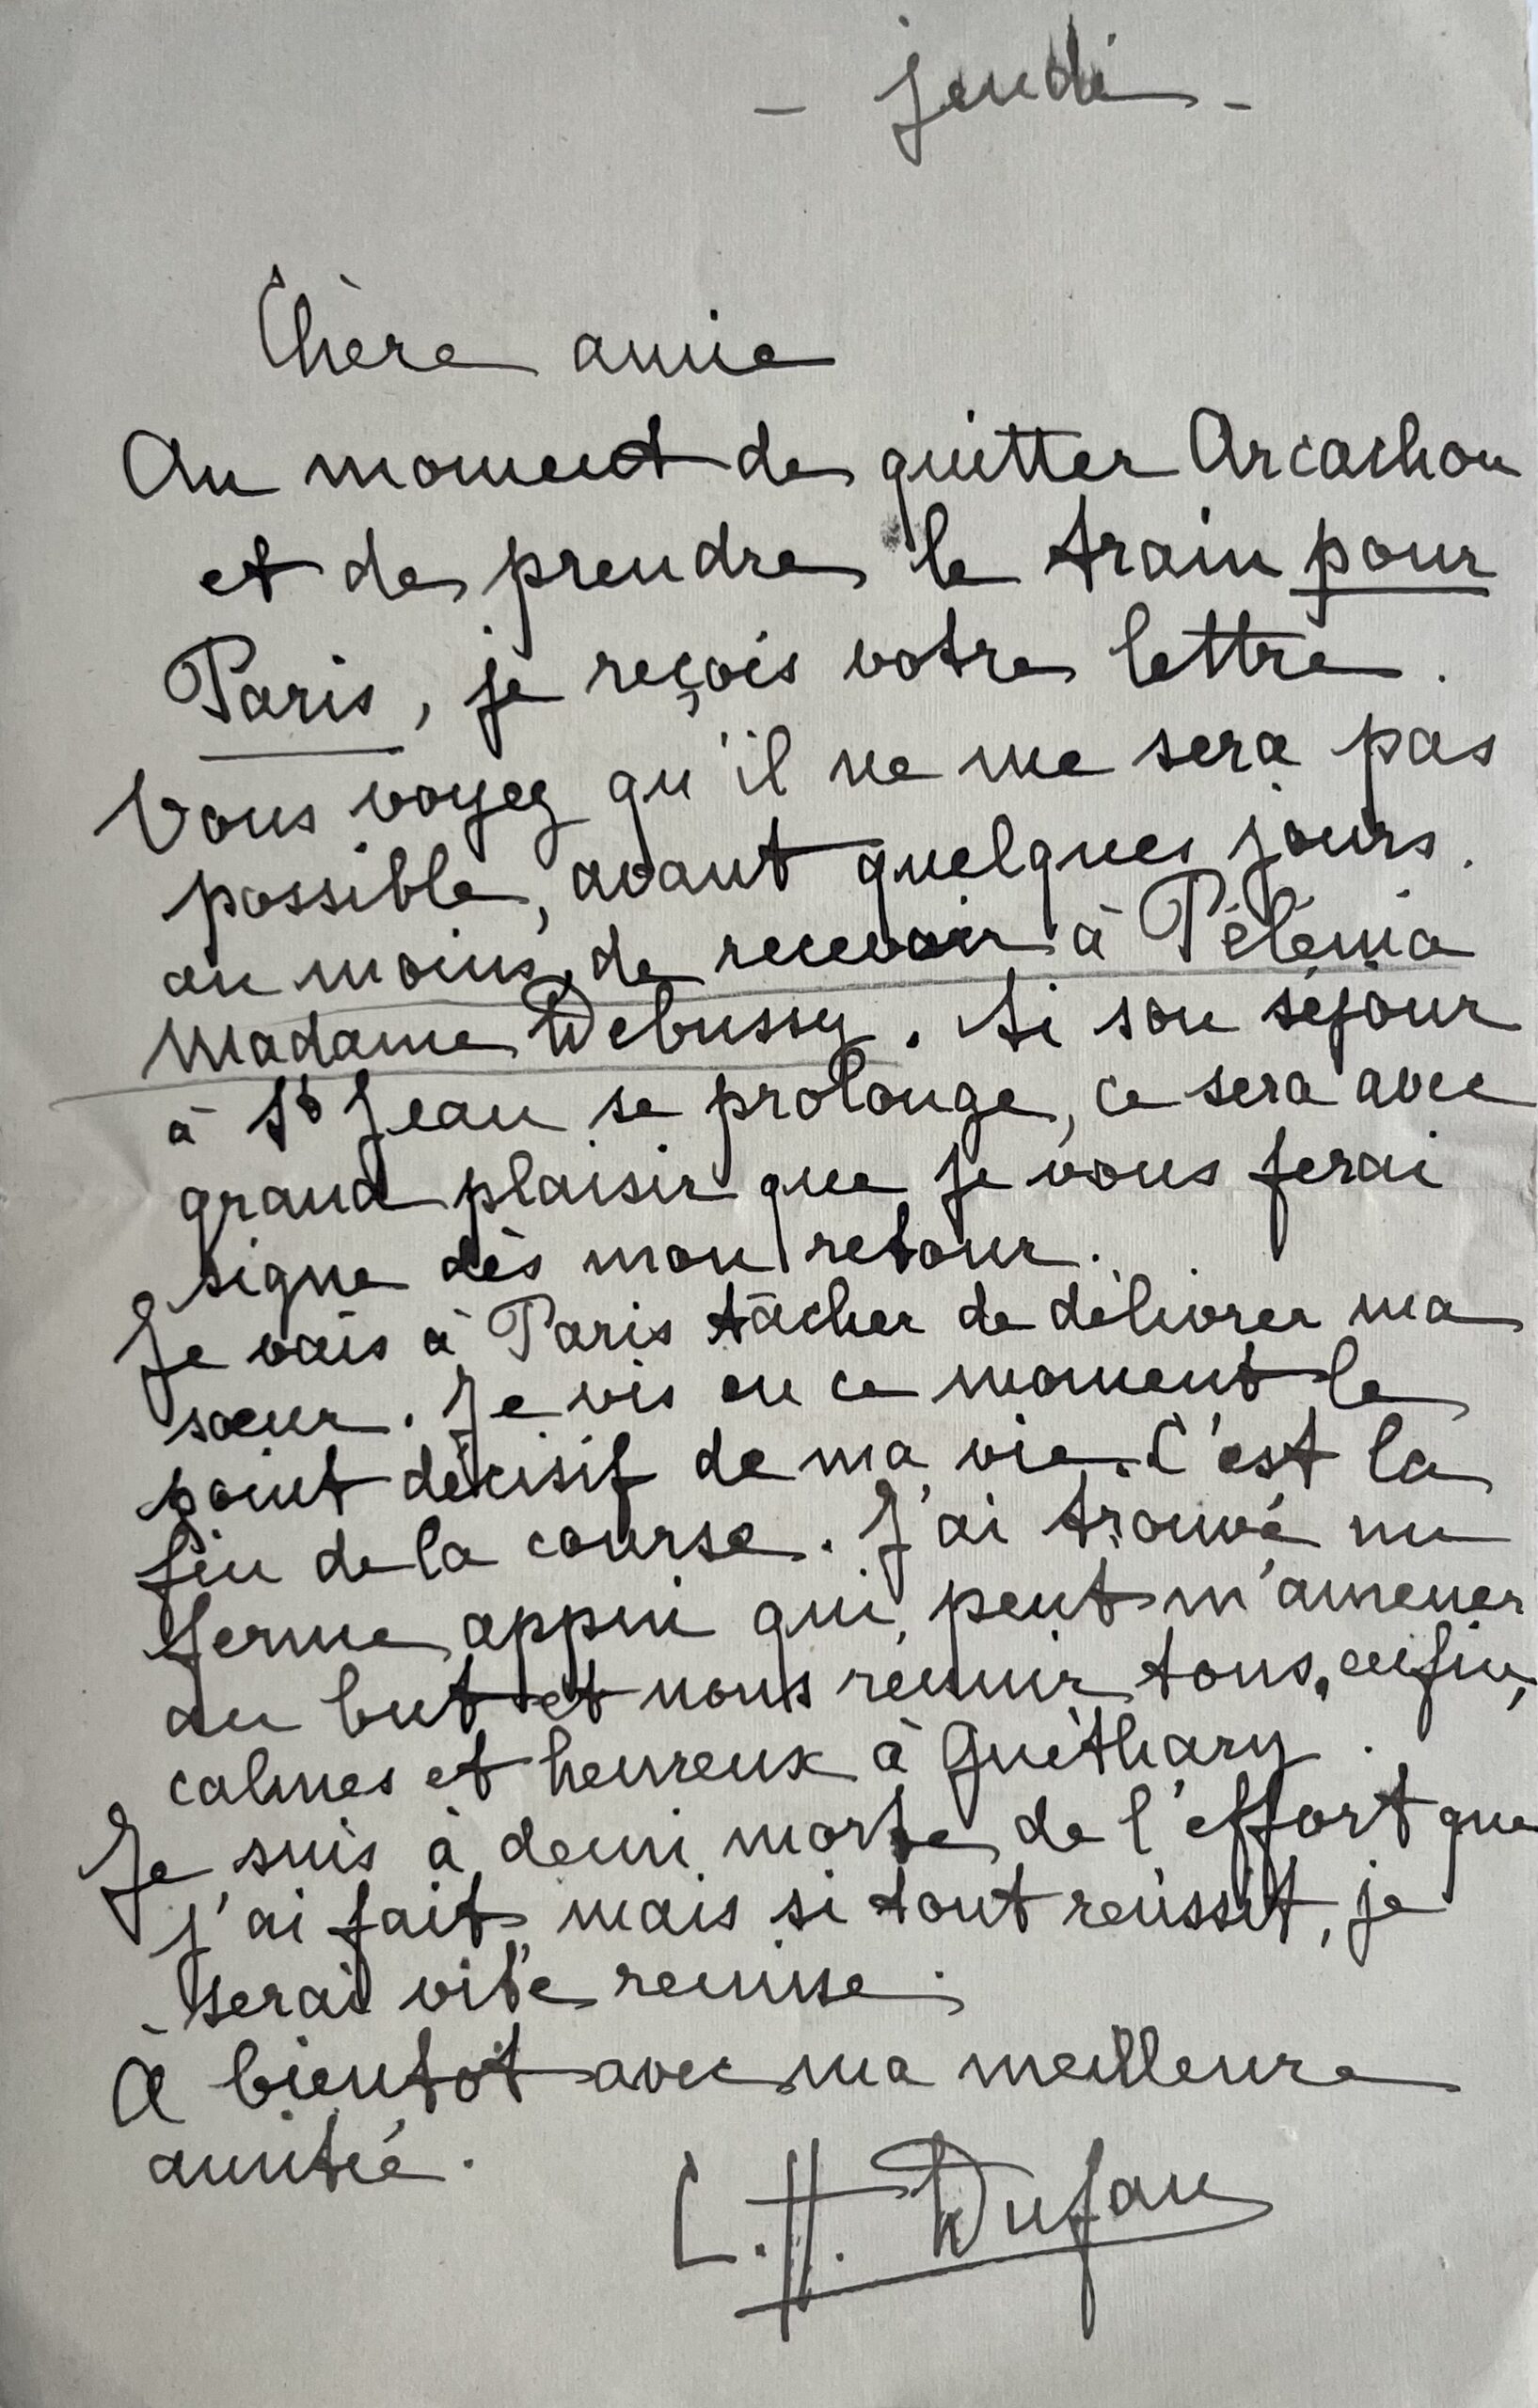 - jeudi -
Chère amie
Au moment de quitter Arcachon
et de prendre le train pour
Paris, je reçois votre lettre.
Vous voyez qu'il ne me sera pas
possible, avant quelques jours
au moins, de recevoir à Pélénia
Madame Debussy. Si son séjour
à St Jean se prolonge, ce sera avec
grand plaisir que je vous ferai
signe dès mon retour.
Je vais à Paris tâcher de délivrer ma
sœur. Je vis en ce moment le
point décisif de ma vie. C'est la
fin de la course. J'ai trouvé un
ferme appui qui peut m'amener
au but et nous réunir tous, enfin,
calmes et heureux à Guéthary.
Je suis à demi morte de l'effort que
j'ai fait, mais si tout réussit, je
serai vite remise.
À bientôt avec ma meilleure
amitié.
C. H. Dufau